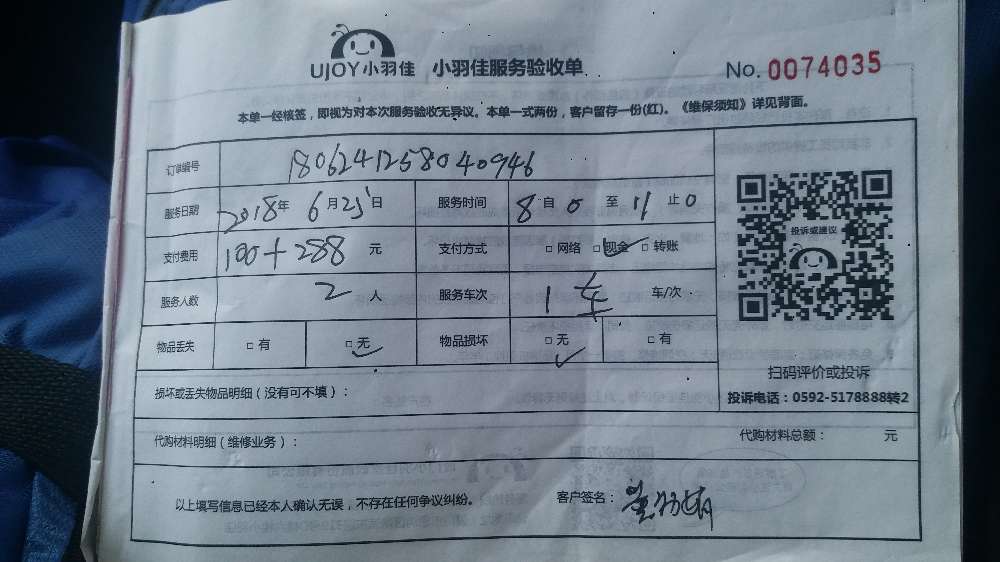 UJOY小羽佳 小羽佳服务验收单 No. 0074035
本单一经核签，即视为对本次服务验收无异议。本单一式两份，客户留存一份(红)。《维保须知》详见背面。
订单编号 1806241258040946
服务日期 2018年 6月25日 服务时间 8自0至11止0
支付费用 100+288 元 支付方式 □网络 □现金 □转账
服务人数 2 人 服务车次 1车 车/次
物品丢失 □有 □无 物品损坏 □无 □有
投诉或建议
扫码评价或投诉
投诉电话：0592-5178888转2
损坏或丢失物品明细（没有可不填）：
代购材料明细（维修业务）： 代购材料总额： 元
以上填写信息已经本人确认无误，不存在任何争议纠纷。 客户签名：